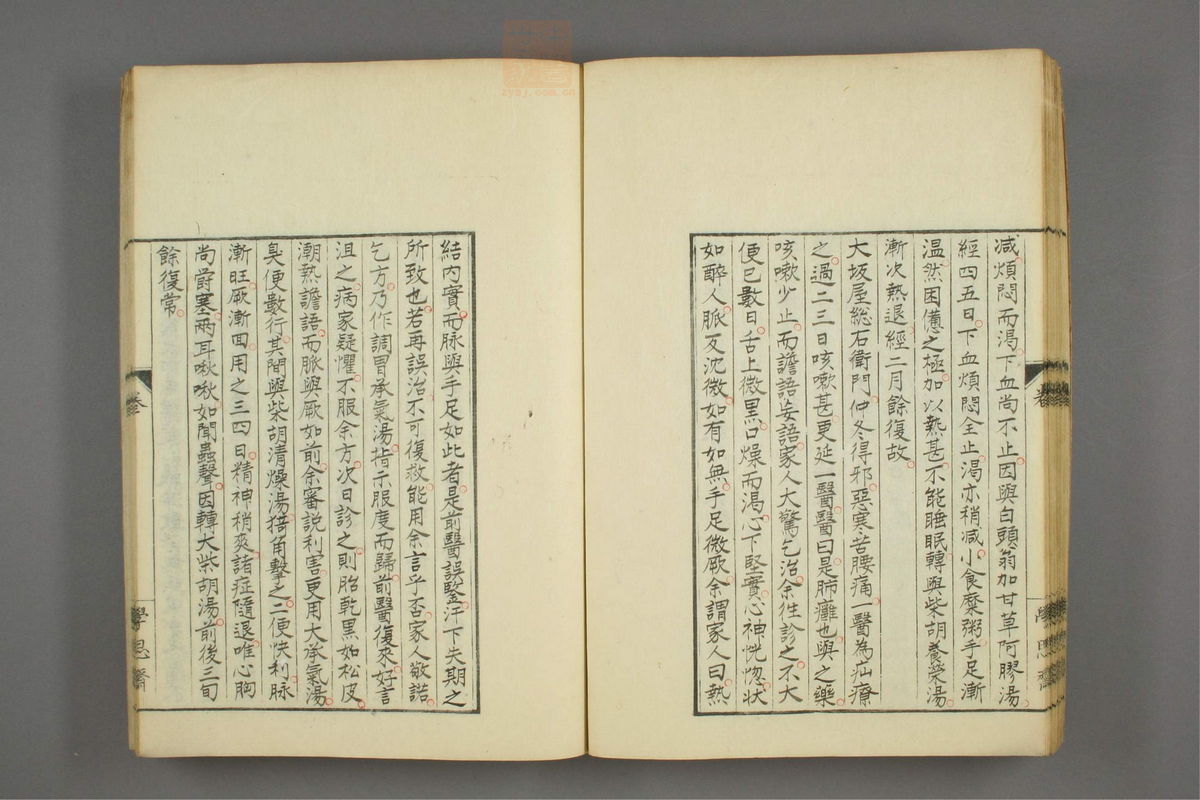 減煩悶而渴下血尚不止因與白頭翁加甘草阿膠湯
經四五日下血煩悶全止渴亦稍減小食糜粥手足漸
温然困憊之極加以熱甚不能睡眠轉與柴胡養榮湯
漸次熱退經二月餘復故
大坂屋総右衛門仲冬得邪惡寒苦腰痛一醫為疝療
之過二三日咳嗽甚更延一醫醫曰是肺癰也與之藥
咳嗽少止而譫語妄語家人大驚乞治余往診之不大
便已數日舌上微黒口燥而渴心下堅實心神恍惚状
如醉人脈反沈微如有如無手足微厥余謂家人曰熱
結内實而脉與手足如此者是前醫誤鑒汗下失期之
所致也若再誤治不可復救能用余言乎否家人敬諾
乞方乃作調胃承氣湯指示服度而歸前醫復來好言
沮之病家疑懼不服余方次日診之則胎乾黒如松皮
潮熱譫語而脈與厥如前余審説利害更用大承氣湯
臭便數行其間與柴胡清燥湯掎角擊之二便快利脉
漸旺厥漸回用之三四日精神稍爽諸症隨退唯心胸
尚欝塞兩耳啾啾如聞蟲聲因轉大柴胡湯前後三旬
餘復常
學思齋
zysj.com.cn